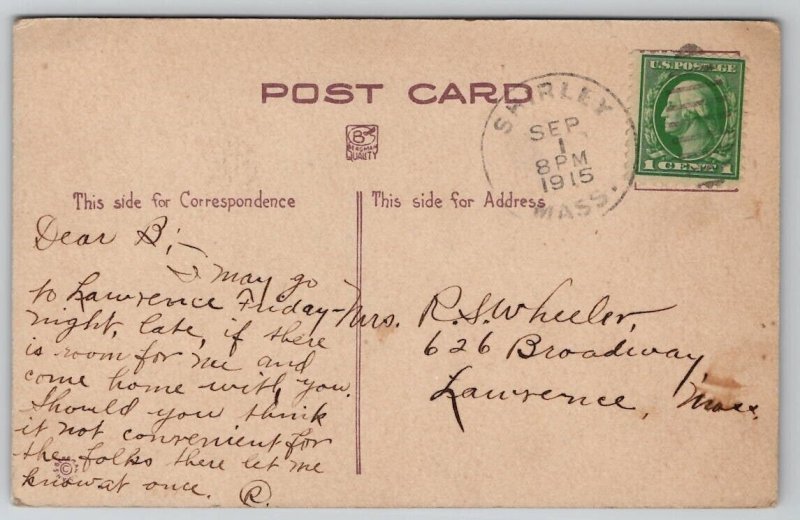 POST CARD
SHIRLEY
SEP
1
8 PM
1915
MASS.
U.S. POSTAGE
1 CENT 1
B
BERGMAN
QUALITY
This side for Correspondence
This side for Address
Dear B;—
I may go
to Lawrence Friday-
night, late, if there
is room for me and
come home with you.
Should you think
it not convenient for
the folks there let me
know at once. R.
©
Mrs. R. S. Wheeler,
626 Broadway,
Lawrence, Mass.